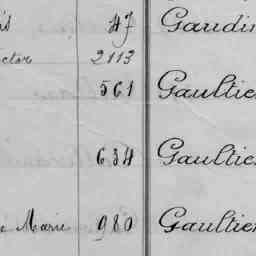 47 Gaudin
ctor 2113
561 Gaultie
634 Gaultie
e Marie 980 Gaultier